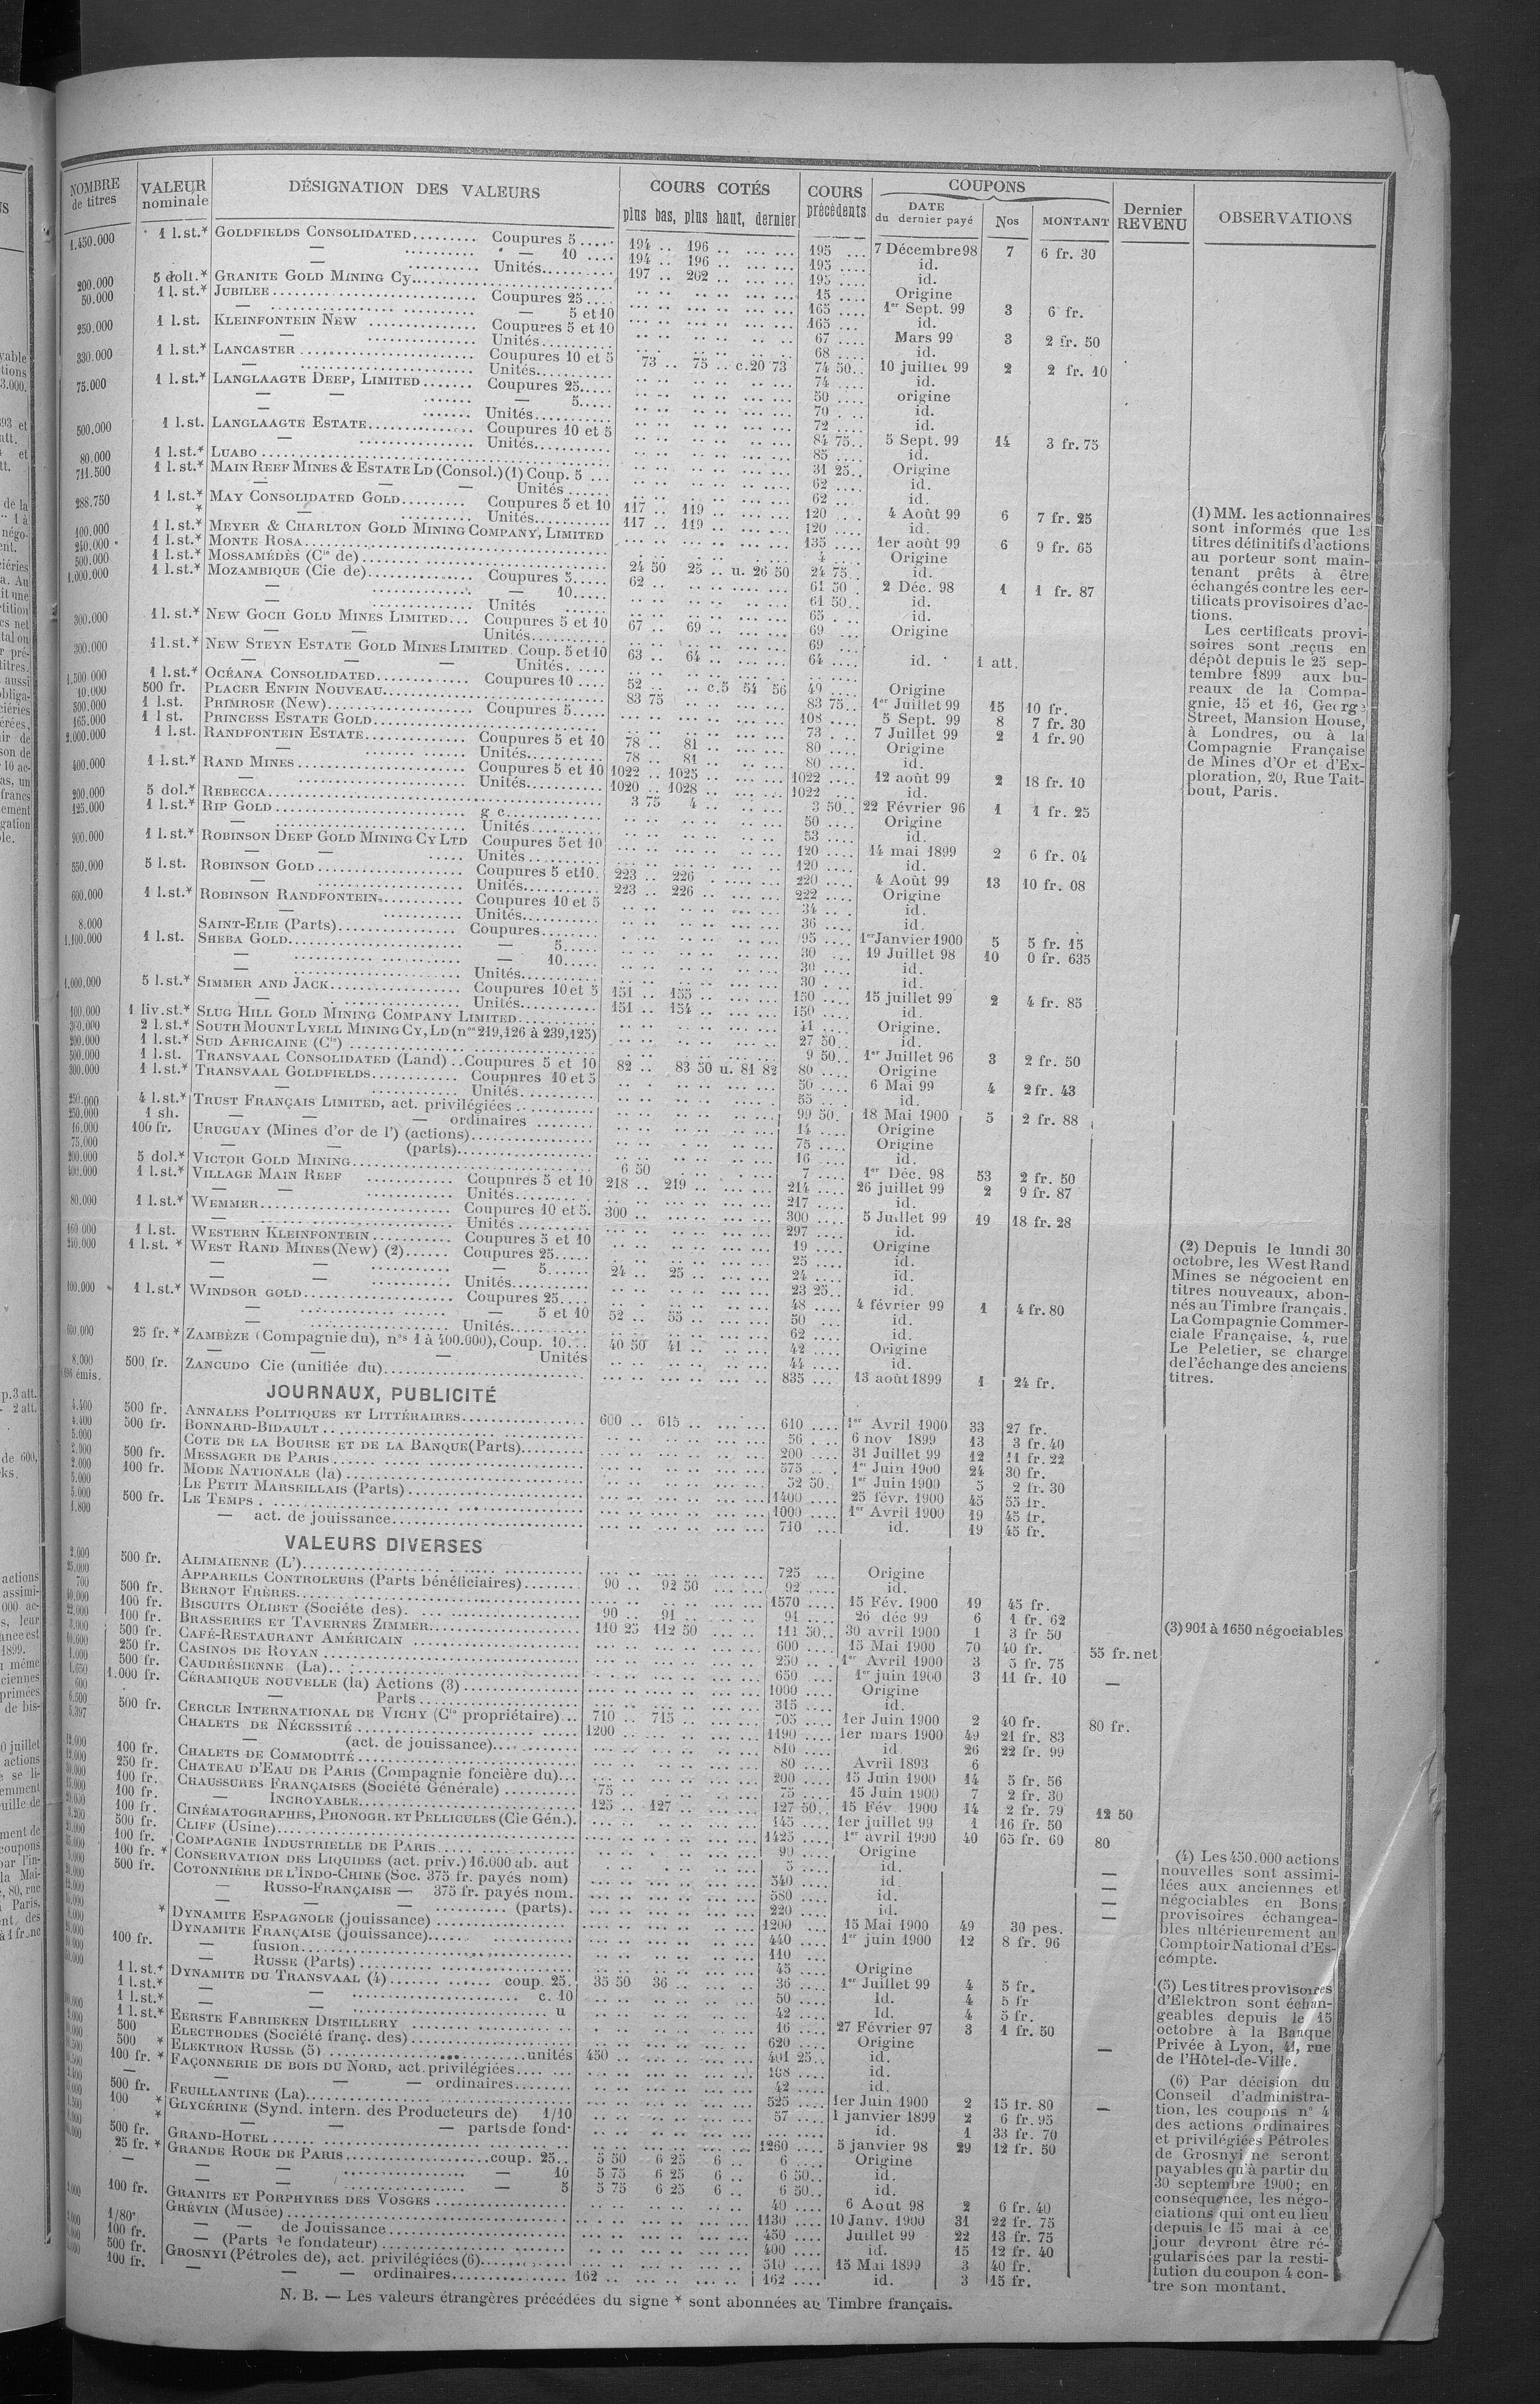 NOMBRE de titres | VALEUR nominale | DÉSIGNATION DES VALEURS | COURS COTÉS plus bas, plus haut, dernier | COURS précédents | COUPONS DATE du dernier payé | Nos | MONTANT | Dernier REVENU | OBSERVATIONS
1.450.000 1 l.st.* GOLDFIELDS CONSOLIDATED......... Coupures 5..... 194 .. 196 .. 195 .... 7 Décembre 98 7 6 fr. 30
— — 10 .... 194 .. 196 .. 195 .... id.
— Unités.......... 197 .. 202 .. 195 .... id.
200.000 5 doll.* GRANITE GOLD MINING Cy.......... 15 .... Origine
50.000 1 l. st.* JUBILEE.......... Coupures 25.... 165 .... 1er Sept. 99 3 6 fr.
— — 5 et 10 165 .... id.
250.000 1 l.st. KLEINFONTEIN NEW .......... Coupures 5 et 10 67 .... Mars 99 3 2 fr. 50
— Unités.......... 68 .... id.
330.000 1 l.st.* LANCASTER.......... Coupures 10 et 5 73 .. 75 .. c.20 73 74 50.. 10 juillet 99 2 2 fr. 10
— Unités.......... 74 .... id.
75.000 1 l.st.* LANGLAAGTE DEEP, LIMITED....... Coupures 25..... 50 .... origine
— — — 5..... 70 .... id.
— Unités.......... 72 .... id.
500.000 1 l.st. LANGLAAGTE ESTATE.......... Coupures 10 et 5 84 75.. 5 Sept. 99 14 3 fr. 75
— Unités.......... 85 .... id.
80.000 1 l.st.* LUABO.......... 31 25.. Origine
711.500 1 l.st.* MAIN REEF MINES & ESTATE LD (Consol.)(1) Coup. 5 ... 62 .... id.
— — — Unités ...... 62 .... id.
288.750 1 l.st.* MAY CONSOLIDATED GOLD......... Coupures 5 et 10 117 .. 119 .. 120 .... 4 Août 99 6 7 fr. 25
* — Unités.......... 117 .. 119 .. 120 .... id.
100.000 1 l.st.* MEYER & CHARLTON GOLD MINING COMPANY, LIMITED 135 .... 1er août 99 6 9 fr. 65
240.000 1 l.st.* MONTE ROSA.......... 4 .... Origine
500.000 1 l.st.* MOSSAMÉDÈS (Cie de).......... 24 50 25 .. u. 26 50 24 75.. id.
1.000.000 1 l.st.* MOZAMBIQUE (Cie de).......... Coupures 5..... 62 .. 61 50 . 2 Déc. 98 1 1 fr. 87
— — 10..... 61 50.. id.
— Unités ...... 65 .... id.
300.000 1 l. st.* NEW GOCH GOLD MINES LIMITED... Coupures 5 et 10 67 .. 69 .. 69 .... Origine
— — Unités.......... 69 ....
300.000 1 l.st.* NEW STEYN ESTATE GOLD MINES LIMITED Coup. 5 et 10 63 .. 64 .. 64 .... id. 1 att.
— — — Unités.....
1.500.000 1 l.st.* OCÉANA CONSOLIDATED.......... Coupures 10 .... 52 .. .. c.5 54 56 49 .... Origine
10.000 500 fr. PLACER ENFIN NOUVEAU.......... 83 75 83 75.. 1er Juillet 99 15 10 fr.
300.000 1 l.st. PRIMROSE (New).......... Coupures 5..... 108 .... 5 Sept. 99 8 7 fr. 30
165.000 1 l st. PRINCESS ESTATE GOLD.......... 73 .... 7 Juillet 99 2 1 fr. 90
2.000.000 1 l.st. RANDFONTEIN ESTATE.......... Coupures 5 et 10 78 .. 81 80 .... Origine
— Unités.......... 78 .. 81 80 .... id.
400.000 1 l.st.* RAND MINES.......... Coupures 5 et 10 1022 .. 1025 .. 1022 .... 12 août 99 2 18 fr. 10
— Unités.......... 1020 .. 1028 .. 1022 .... id.
200.000 5 dol.* REBECCA.......... 3 75 4 3 50.. 22 Février 96 1 1 fr. 25
125.000 1 l.st.* RIP GOLD.......... g c.......... 50 .... Origine
— Unités.......... 53 .... id.
900.000 1 l.st.* ROBINSON DEEP GOLD MINING CY LTD Coupures 5 et 10 120 .... 14 mai 1899 2 6 fr. 04
— — Unités.......... 120 .... id.
550.000 5 l.st. ROBINSON GOLD.......... Coupures 5 et 10. 223 .. 226 .. 220 .... 4 Août 99 13 10 fr. 08
— Unités.......... 223 .. 226 .. 222 .... Origine
600.000 1 l.st.* ROBINSON RANDFONTEIN.......... Coupures 10 et 5 34 .... id.
— Unités.......... 36 .... id.
8.000 SAINT-ELIE (Parts).......... Coupures........ 95 .... 1er Janvier 1900 5 5 fr. 15
1.100.000 1 l.st. SHEBA GOLD.......... — 5..... 30 .... 19 Juillet 98 10 0 fr. 635
— — 10..... 30 .... id.
— Unités.......... 30 .... id.
1.000.000 5 l.st.* SIMMER AND JACK.......... Coupures 10 et 5 151 .. 155 .. 150 .... 15 juillet 99 2 4 fr. 85
— Unités.......... 151 .. 154 .. 150 .... id.
100.000 1 liv.st.* SLUG HILL GOLD MINING COMPANY LIMITED.......... 41 .... Origine.
300.000 2 l.st.* SOUTH MOUNT LYELL MINING CY, LD (nos 219,126 à 239,125) 27 50.. id.
200.000 1 l.st.* SUD AFRICAINE (Cie) .......... 9 50.. 1er Juillet 96 3 2 fr. 50
500.000 1 l.st. TRANSVAAL CONSOLIDATED (Land) ..Coupures 5 et 10 82 .. 83 50 u. 81 82 80 .... Origine
300.000 1 l.st.* TRANSVAAL GOLDFIELDS.......... Coupures 10 et 5 50 .... 6 Mai 99 4 2 fr. 43
— Unités.......... 55 .... id.
250.000 4 l.st.* TRUST FRANÇAIS LIMITED, act. privilégiées .......... 99 50. 18 Mai 1900 5 2 fr. 88
250.000 1 sh. — — — ordinaires ........ 14 .... Origine
16.000 100 fr. URUGUAY (Mines d'or de l') (actions).......... 75 .... Origine
75.000 — — (parts).......... 16 .... id.
200.000 5 dol.* VICTOR GOLD MINING.......... 6 50 7 .... 1er Déc. 98 53 2 fr. 50
400.000 1 l.st.* VILLAGE MAIN REEF .......... Coupures 5 et 10 218 .. 219 .. 214 .... 26 juillet 99 2 9 fr. 87
— — Unités.......... 217 .... id.
80.000 1 l.st.* WEMMER.......... Coupures 10 et 5. 300 .. 300 .... 5 Juillet 99 19 18 fr. 28
— Unités.......... 297 .... id.
160.000 1 l.st. WESTERN KLEINFONTEIN.......... Coupures 5 et 10 19 .... Origine
240.000 1 l.st. * WEST RAND MINES (New) (2)...... Coupures 25..... 25 .... id.
— — — 5...... 24 .. 25 .. 24 .... id.
— — Unités.......... 23 25.. id.
100.000 1 l.st.* WINDSOR GOLD.......... Coupures 25.... 48 .... 4 février 99 1 4 fr. 80
— — 5 et 10 52 .. 55 .. 50 ... id.
— Unités.......... 62 .... id.
600.000 25 fr.* ZAMBÈZE (Compagnie du), nos 1 à 400.000), Coup. 10... 40 50 41 .. 42 .... Origine
— — — Unités 44 .... id.
8.000 500 fr. ZANCUDO Cie (unifiée du).......... 835 .... 13 août 1899 1 24 fr.
émis.
JOURNAUX, PUBLICITÉ
4.400 500 fr. ANNALES POLITIQUES ET LITTÉRAIRES.......... 600 .. 615 .. 610 .... 1er Avril 1900 33 27 fr.
4.400 500 fr. BONNARD-BIDAULT.......... 56 .... 6 nov 1899 13 3 fr. 40
5.000 COTE DE LA BOURSE ET DE LA BANQUE (Parts).......... 200 .... 31 Juillet 99 12 11 fr. 22
2.000 500 fr. MESSAGER DE PARIS.......... 575 .... 1er Juin 1900 24 30 fr.
2.000 100 fr. MODE NATIONALE (la).......... 52 50. 1er Juin 1900 5 2 fr. 30
5.000 LE PETIT MARSEILLAIS (Parts).......... 1400 .... 25 févr. 1900 45 55 fr.
5.000 500 fr. LE TEMPS.......... 1000 .... 1er Avril 1900 19 45 fr.
1.800 — act. de jouissance.......... 710 .... id. 19 45 fr.
VALEURS DIVERSES
2.000 500 fr. ALIMAIENNE (L').......... 725 .... Origine
25.000 APPAREILS CONTROLEURS (Parts bénéficiaires)........ 90 .. 92 50 92 .... id.
700 500 fr. BERNOT FRÈRES.......... 1570 .... 15 Fév. 1900 19 45 fr.
100 fr. BISCUITS OLIBET (Sociéte des).......... 90 .. 91 91 .... 26 déc 99 6 1 fr. 62
100 fr. BRASSERIES ET TAVERNES ZIMMER.......... 110 25 112 50 111 50.. 30 avril 1900 1 3 fr 50
500 fr. CAFÉ-RESTAURANT AMÉRICAIN .......... 600 .... 15 Mai 1900 70 40 fr. 55 fr. net
250 fr. CASINOS DE ROYAN.......... 250 .. 1er Avril 1900 3 5 fr. 75
1.000 500 fr. CAUDRÉSIENNE (La).......... 650 .... 1er juin 1900 3 11 fr. 10 —
1.650 1.000 fr. CÉRAMIQUE NOUVELLE (la) Actions (3).......... 1000 .... Origine
600 — Parts.......... 315 .... id.
6.500 500 fr. CERCLE INTERNATIONAL DE VICHY (Cie propriétaire)... 710 .. 715 .. 705 .... 1er Juin 1900 2 40 fr. 80 fr.
5.397 CHALETS DE NÉCESSITÉ .......... 1200 .. 1190 .... 1er mars 1900 49 21 fr. 83
— (act. de jouissance).......... 810 .... id 26 22 fr. 99
100 fr. CHALETS DE COMMODITÉ.......... 80 .... Avril 1893 6
250 fr. CHATEAU D'EAU DE PARIS (Compagnie foncière du)... 200 .... 15 Juin 1900 14 5 fr. 56
100 fr. CHAUSSURES FRANÇAISES (Société Générale) .......... 75 .. 75 .... 15 Juin 1900 7 2 fr. 30
100 fr. — INCROYABLE.......... 125 .. 127 .. 127 50.. 15 Fév. 1900 14 2 fr. 79 12 50
100 fr. CINÉMATOGRAPHES, PHONOGR. ET PELLICULES (Cie Gén.). 145 .... 1er juillet 99 1 16 fr. 50
500 fr. CLIFF (Usine).......... 1425 .... 1er avril 1900 40 65 fr. 60 80
100 fr. COMPAGNIE INDUSTRIELLE DE PARIS.......... 90 .... Origine
100 fr. * CONSERVATION DES LIQUIDES (act. priv.) 16.000 ab. aut 5 .... id. —
500 fr. COTONNIÈRE DE L'INDO-CHINE (Soc. 375 fr. payés nom) 540 .... id —
— RUSSO-FRANÇAISE — 375 fr. payés nom. 580 .... id. —
— — (parts). 220 .... id. —
* DYNAMITE ESPAGNOLE (jouissance) .......... 1200 .... 15 Mai 1900 49 30 pes.
DYNAMITE FRANÇAISE (jouissance).......... 440 .... 1er juin 1900 12 8 fr. 96
100 fr. — fusion.......... 110 ....
— RUSSE (Parts).......... 45 .... Origine
1 l.st.* DYNAMITE DU TRANSVAAL (4).......... coup. 25. 35 50 36 .. 36 .... 1er Juillet 99 4 5 fr.
1 l.st.* — — .......... c. 10 50 .... Id. 4 5 fr
1 l.st.* — — .......... u 42 .... Id. 4 5 fr.
1 l.st.* EERSTE FABRIEKEN DISTILLERY .......... 16 .... 27 Février 97 3 1 fr. 50
500 ELECTRODES (Société franç. des).......... 620 .... Origine
500 * ELEKTRON RUSSE (5) ..........unités 450 .. 401 25.. id. —
100 fr. * FAÇONNERIE DE BOIS DU NORD, act. privilégiées.......... 108 .... id.
— — — ordinaires.......... 42 .... id.
500 fr. FEUILLANTINE (La).......... 525 .... 1er Juin 1900 2 15 fr. 80 —
100 * GLYCÉRINE (Synd. intern. des Producteurs de) 1/10 57 .... 1 janvier 1899 2 6 fr. 95
* — — — parts de fond. id. 1 33 fr. 70
500 fr. GRAND-HOTEL.......... 1260 .... 5 janvier 98 29 12 fr. 50
25 fr. * GRANDE ROUE DE PARIS..........coup. 25.. 5 50 6 25 6 .. 6 .... Origine
— — — .......... — 10 5 75 6 25 6 .. 6 50.. id.
— — .......... — 5 5 75 6 25 6 .. 6 50.. id.
100 fr. GRANITS ET PORPHYRES DES VOSGES .......... 40 .... 6 Août 98 2 6 fr. 40
GRÉVIN (Musée).......... 1130 .... 10 Janv. 1900 31 22 fr. 75
1/80e — — de Jouissance.......... 450 .... Juillet 99 22 13 fr. 75
100 fr. — (Parts de fondateur).......... 400 .... id. 15 12 fr. 40
500 fr. GROSNYI (Pétroles de), act. privilégiées (6).......... 510 .... 15 Mai 1899 3 40 fr.
100 fr. — — — ordinaires.......... 162 .. 162 .... id. 3 15 fr.
(1) MM. les actionnaires
sont informés que les
titres définitifs d'actions
au porteur sont main-
tenant prêts à être
échangés contre les cer-
tificats provisoires d'ac-
tions.
Les certificats provi-
soires sont reçus en
dépôt depuis le 25 sep-
tembre 1899 aux bu-
reaux de la Compa-
gnie, 15 et 16, George
Street, Mansion House,
à Londres, ou à la
Compagnie Française
de Mines d'Or et d'Ex-
ploration, 20, Rue Tait-
bout, Paris.
(2) Depuis le lundi 30
octobre, les West Rand
Mines se négocient en
titres nouveaux, abon-
nés au Timbre français.
La Compagnie Commer-
ciale Française, 4, rue
Le Peletier, se charge
de l'échange des anciens
titres.
(3) 901 à 1650 négociables
(4) Les 450.000 actions
nouvelles sont assimi-
lées aux anciennes et
négociables en Bons
provisoires échangea-
bles ultérieurement au
Comptoir National d'Es-
compte.
(5) Les titres provisoires
d'Elektron sont échan-
geables depuis le 15
octobre à la Banque
Privée à Lyon, 41, rue
de l'Hôtel-de-Ville.
(6) Par décision du
Conseil d'administra-
tion, les coupons n° 4
des actions ordinaires
et privilégiées Pétroles
de Grosnyi ne seront
payables qu'à partir du
30 septembre 1900; en
conséquence, les négo-
ciations qui ont eu lieu
depuis le 15 mai à ce
jour devront être ré-
gularisées par la resti-
tution du coupon 4 con-
tre son montant.
N. B. — Les valeurs étrangères précédées du signe * sont abonnées au Timbre français.